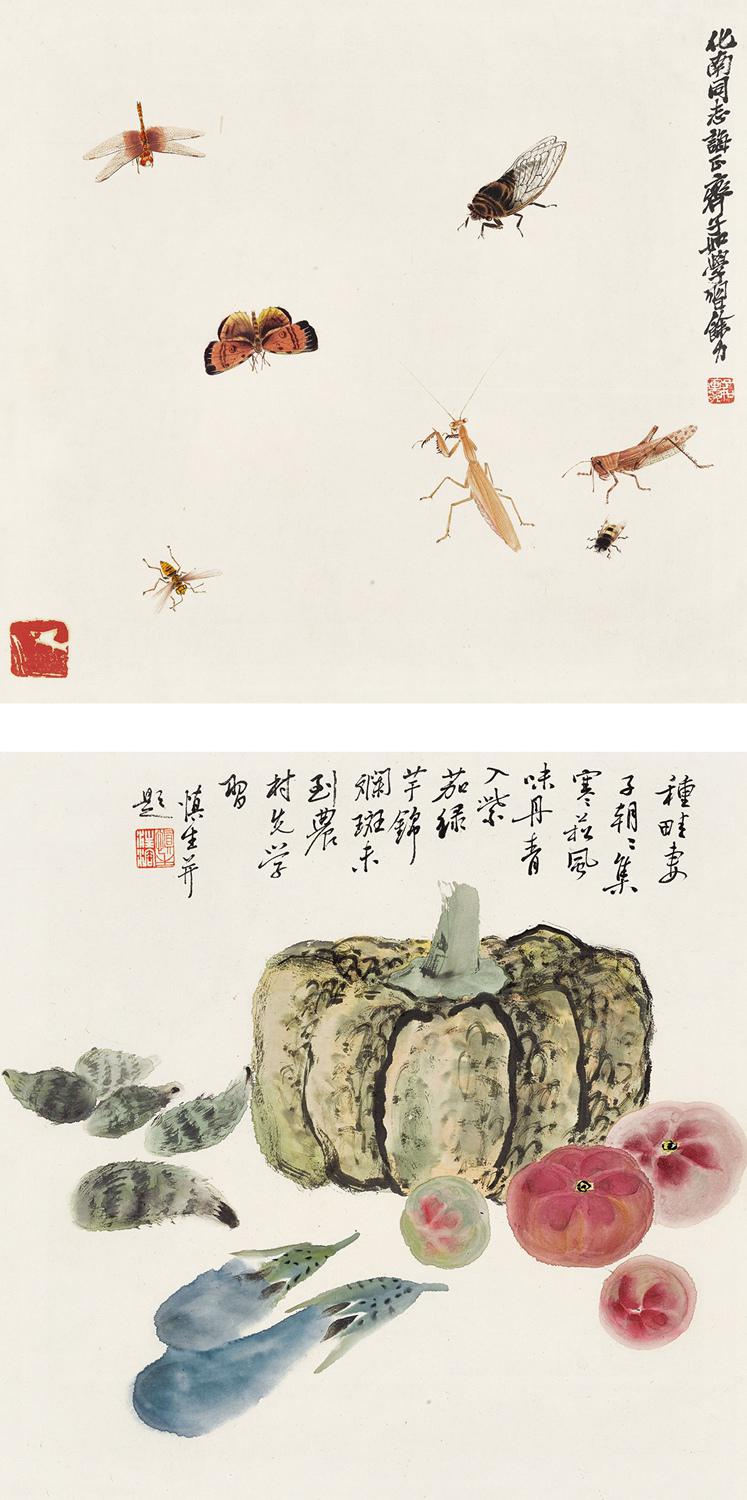 化南同志誨正齊子如學習餘力
種畦妻
子朝〻集
寒菘風
味丹青
入紫
茄綠
芋錦
斕斑未
到農
村先学
習
慎生并
題